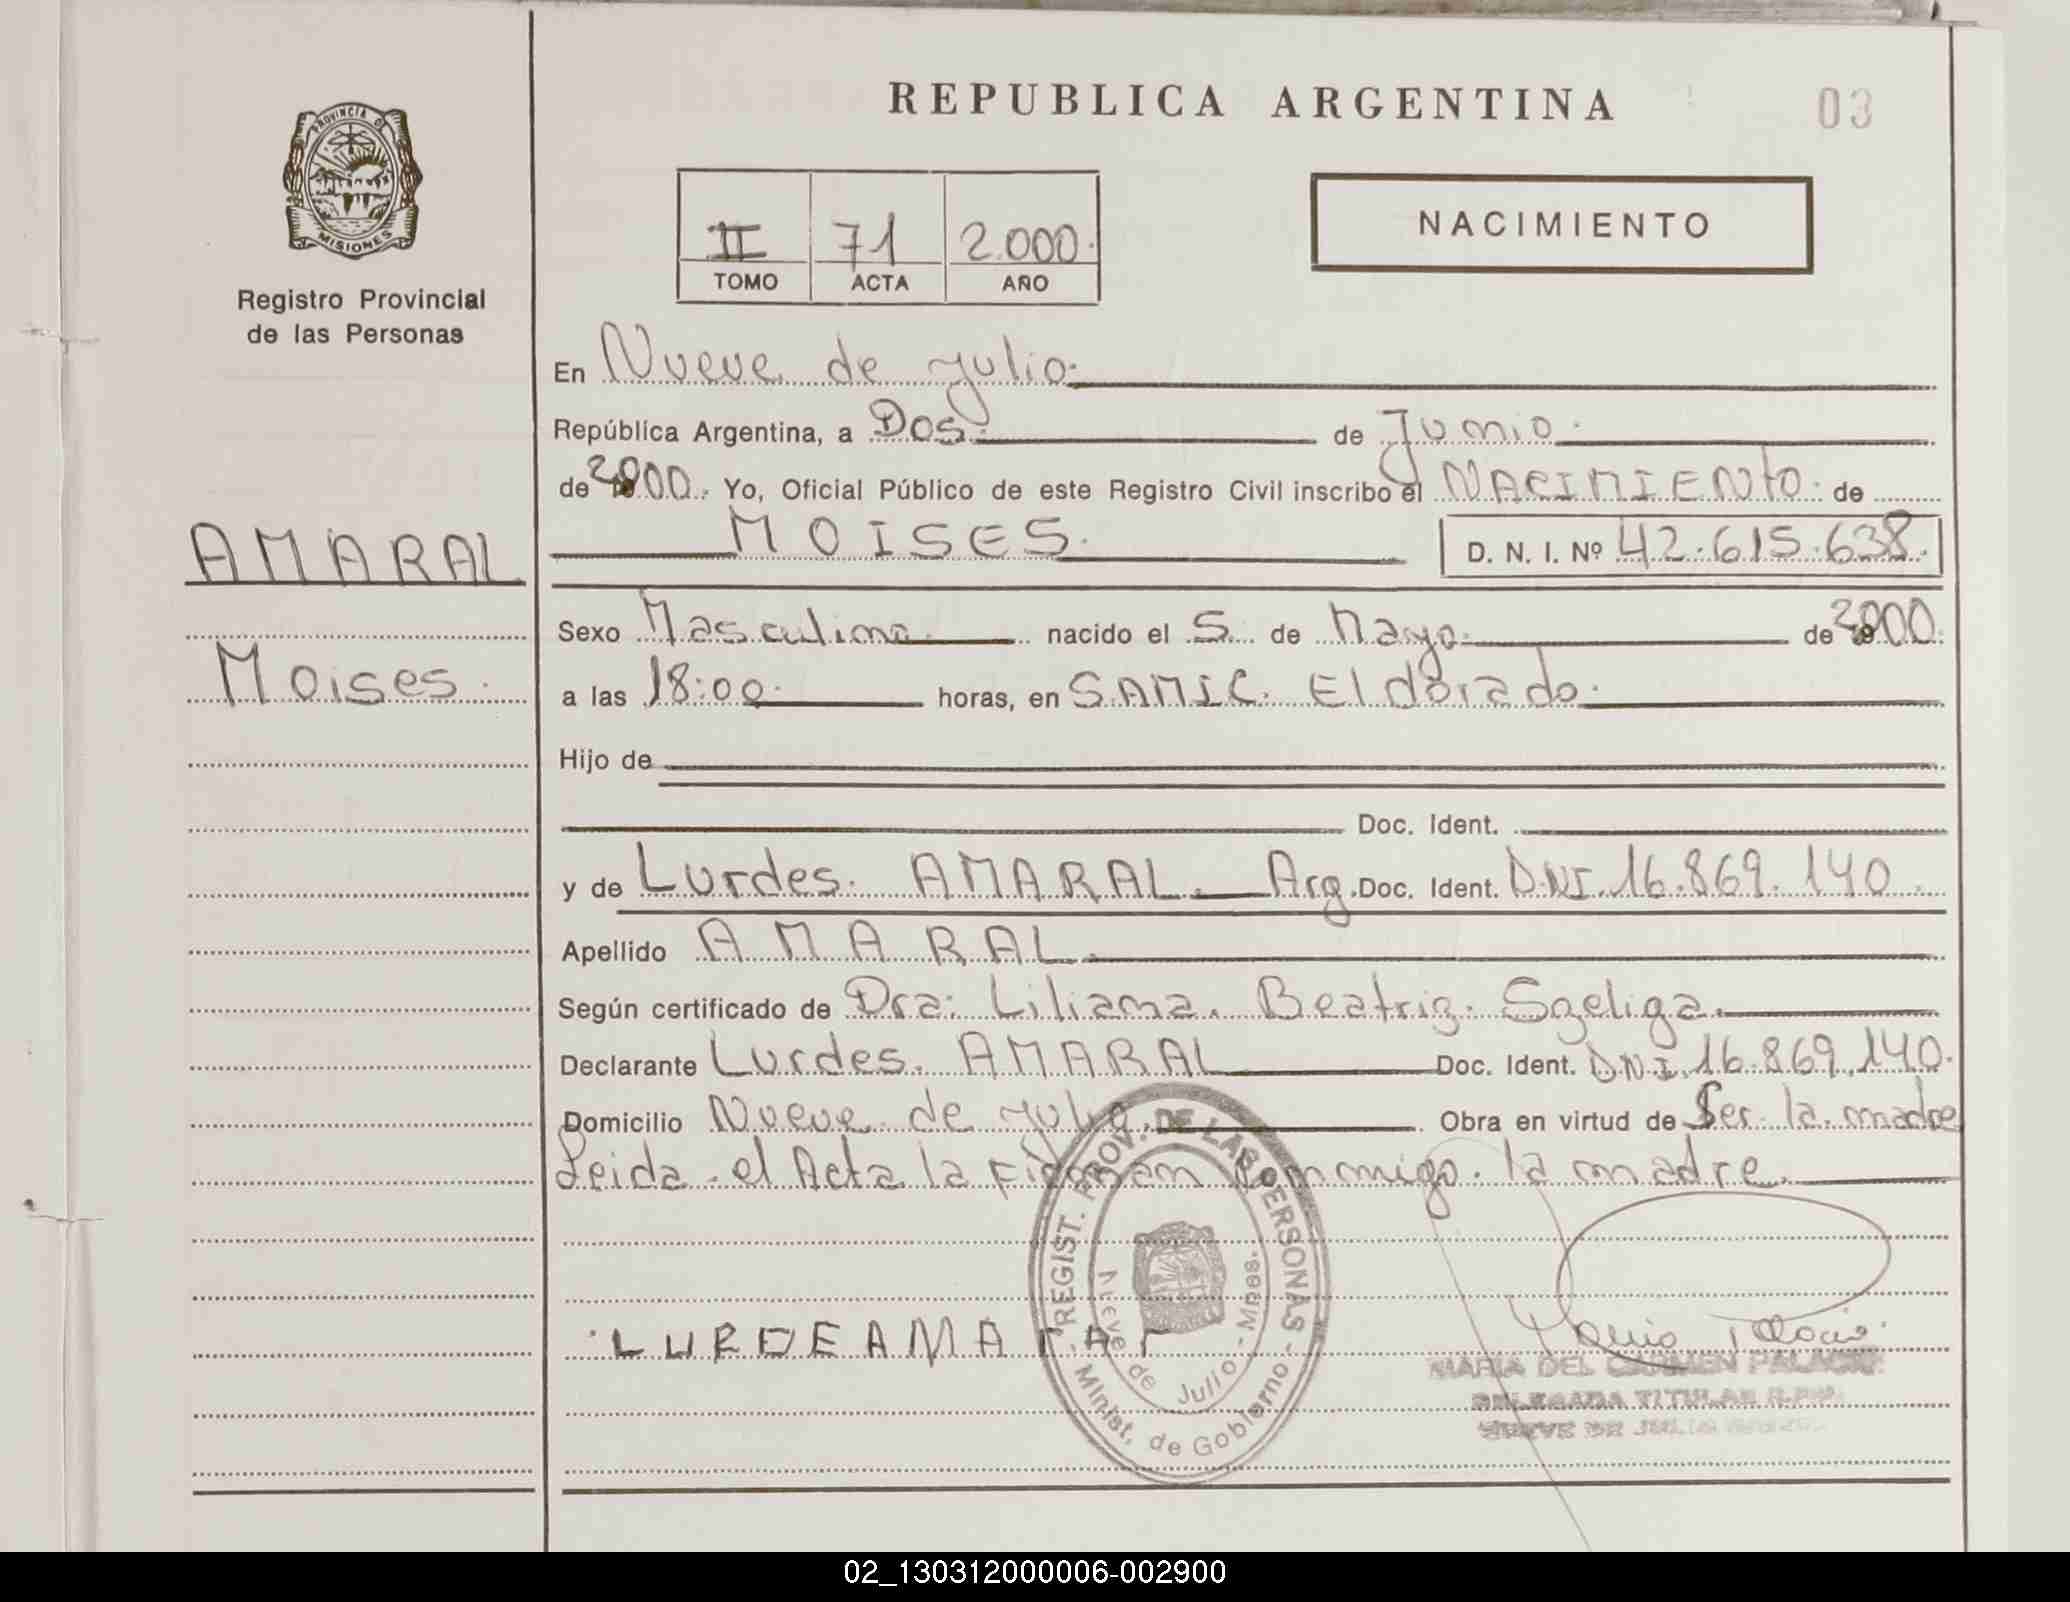 REPUBLICA ARGENTINA
03
PROVINCIA DE
MISIONES
Registro Provincial
de las Personas
II 71 2.000.
TOMO ACTA AÑO
NACIMIENTO
En Nueve de julio.
República Argentina, a Dos. de Junio.
de 2000. Yo, Oficial Público de este Registro Civil inscribo el NACIMIENTO. de
AMARAL
MOISES. D. N. I. Nº 42.615.638.
Sexo Masculino. nacido el 5 de Mayo. de 2000.
Moises.
a las 18:00. horas, en S.AMIC. Eldorado.
Hijo de
Doc. Ident.
y de Lurdes. AMARAL. Arg. Doc. Ident. D.N.I. 16.869.140.
Apellido AMARAL.
Según certificado de Dra: Liliana. Beatriz. Szeliga.
Declarante Lurdes. AMARAL Doc. Ident. D.N.I. 16.869.140.
Domicilio Nueve de julio. Obra en virtud de Ser la madre
Leida el Acta la Firman conmigo. la madre.
REGIST. PROV. DE LAS PERSONAS
Nueve de Julio - Mnes.
Minist. de Gobierno
LURDEAMArAr
MARIA DEL CARMEN PALACIO
DELEGADA TITULAR R.P.P.
NUEVE DE JULIO
02_130312000006-002900